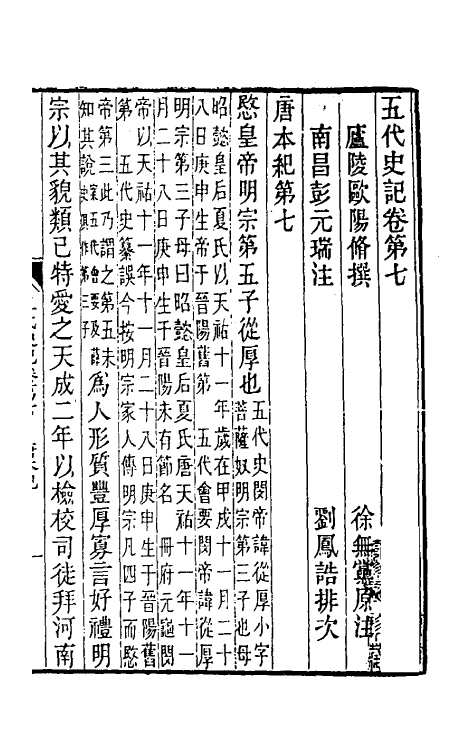 五代史記卷第七
廬陵歐陽脩撰　徐無黨原注
南昌彭元瑞注　劉鳳誥排次
唐本紀第七
愍皇帝明宗第五子從厚也
五代史閔帝諱從厚小字
菩薩奴明宗第三子也母
昭懿皇后夏氏以天祐十一年歲在甲戌十一月二十
八日庚申生帝于晉陽舊第　五代會要閔帝諱從厚
明宗第三子母曰昭懿皇后夏氏唐天祐十一年十一
月二十八日庚申生于晉陽未有節名　冊府元龜閔
帝以天祐十一年十一月二十八日庚申生于晉陽舊
第　五代史纂誤今按明宗家人傳明宗凡四子而愍
帝第三此乃謂之第五未
知其說
案五代會要及薛
史俱作第三子
為人形質豐厚寡言好禮明
宗以其貌類己特愛之天成二年以檢校司徒拜河南